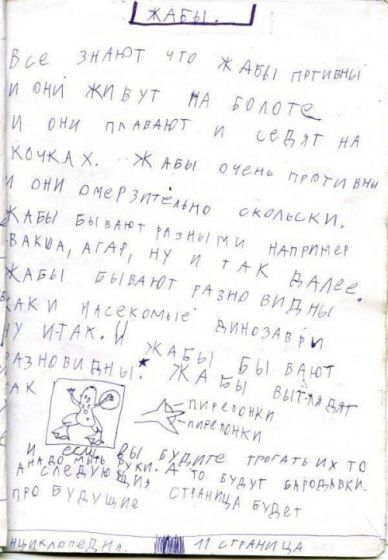 ЖАБЫ.
ВСЕ ЗНАЮТ ЧТО ЖАБЫ ПРТИВНЫ
И ОНИ ЖИВУТ НА БОЛОТЕ
И ОНИ ПЛАВАЮТ И СЕДЯТ НА
КОЧКАХ. ЖАБЫ ОЧЕНЬ ПРОТИВНЫ
И ОНИ ОМЕРЗИТЕЛЬНО СКОЛЬСКИ.
ЖАБЫ БЫВАЮТ РАЗНЫМИ НАПРИМЕР
ВАКША, АГАР, НУ И ТАК ДАЛЕЕ.
ЖАБЫ БЫВАЮТ РАЗНО ВИДНЫ
КАК И НАСЕКОМЫЕ ДИНОЗАВРИ
НУ ИТАК. И ЖАБЫ БЫВАЮТ
РАЗНОВИДНЫ. ЖАБЫ ВЫГЛЯДЯТ
ТАК
ПИРЕПОНКИ
ПИРЕПОНКИ
И ЕСЛИ ВЫ БУДИТЕ ТРОГАТЬ ИХ ТО
НАДО МЫТЬ РУКИ. А ТО БУДУТ БАРОДАВКИ.
А СЛЕДУЮЩИЯ СТРАНИЦА БУДЕТ
ПРО БУДУЩИЕ
ЭНЦИКЛОПЕДИЯ. 11 СТРАНИЦА